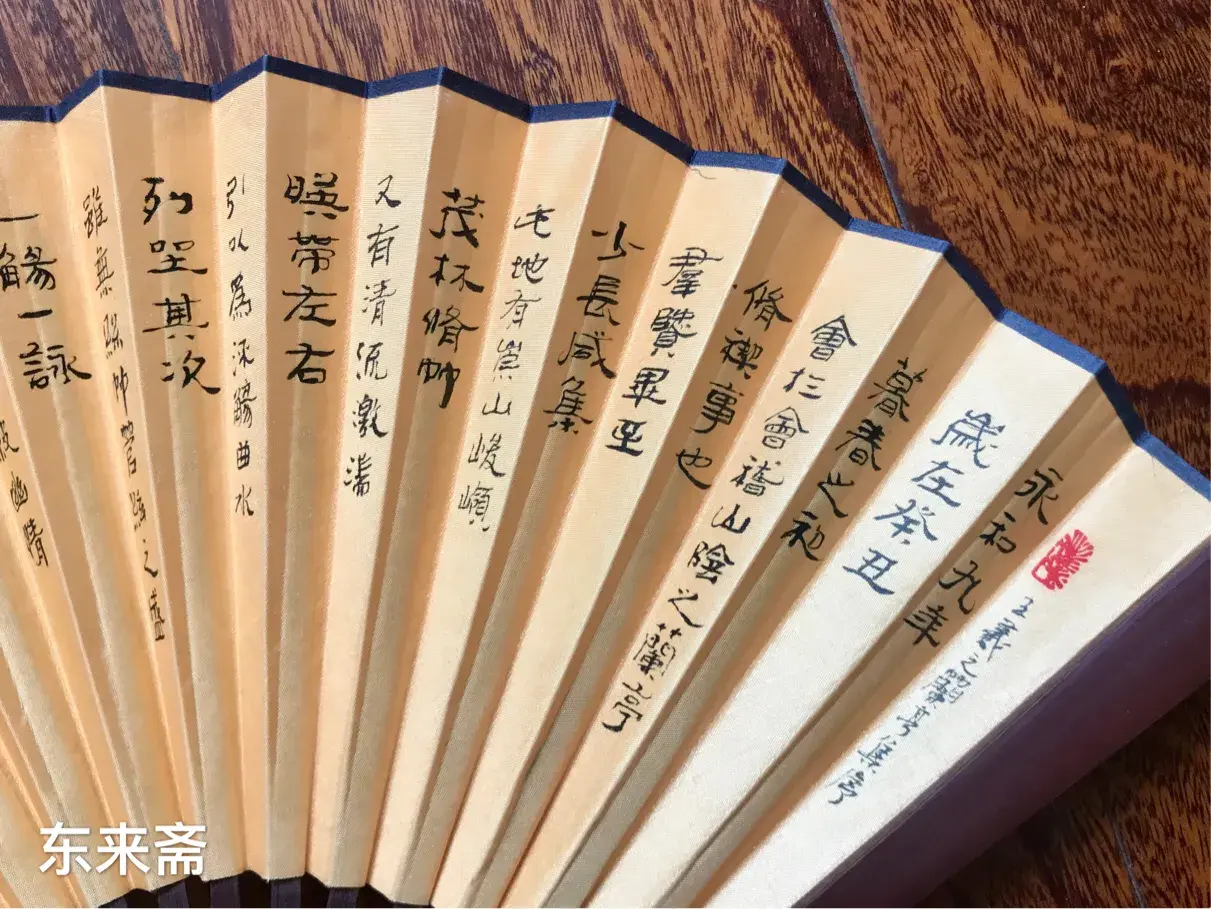 王羲之蘭亭集序
永和九年
歲在癸丑
暮春之初
會扵會稽山陰之蘭亭
脩禊事也
羣賢畢至
少長咸集
此地有崇山峻嶺
茂林脩竹
又有清流激湍
暎帶左右
引以為流觴曲水
列坐其次
雖無絲竹管絃之盛
一觴一詠
敘幽情
东来斋